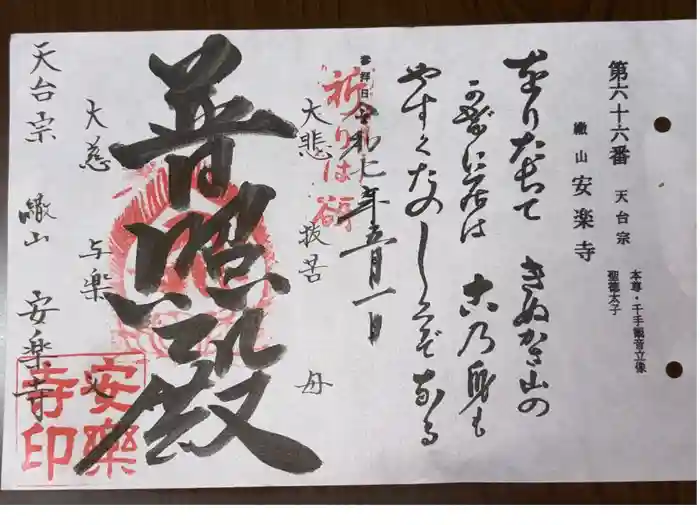 第六十六番 天台宗
本尊・千手観音立像
聖徳太子
繖山 安楽寺
きぬかさ山の
かげに居は この身も
やすくたのしくぞ
参拝日 令和七年五月一日
祈りは
大悲 抜苦 母
普照殿
大慈 与楽 父
天台宗 繖山 安楽寺
安樂寺印